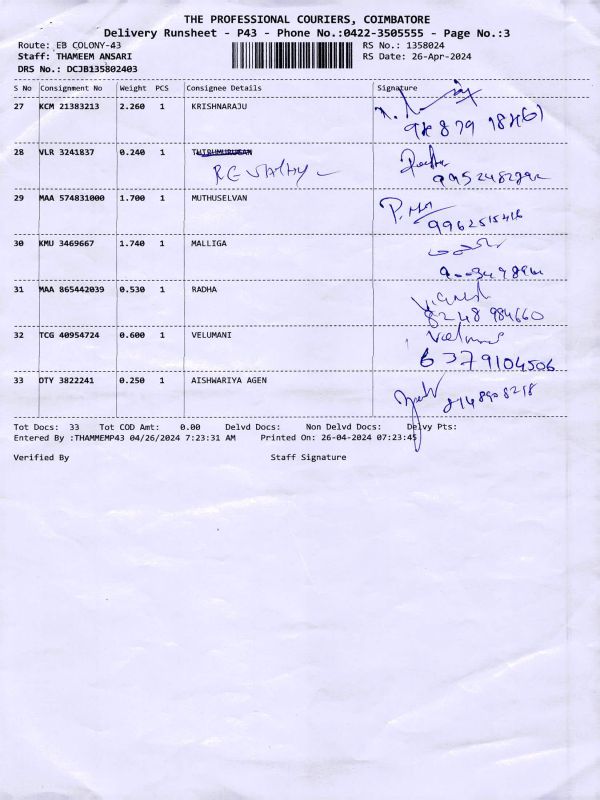 THE PROFESSIONAL COURIERS, COIMBATORE
Delivery Runsheet - P43 - Phone No.:0422-3505555 - Page No.:3
Route: EB COLONY-43 RS No.: 1358024
Staff: THAMEEM ANSARI RS Date: 26-Apr-2024
DRS No.: DCJB135802403
S No Consignment No Weight PCS Consignee Details Signature
27 KCM 21383213 2.260 1 KRISHNARAJU
28 VLR 3241837 0.240 1
29 MAA 574831000 1.700 1 MUTHUSELVAN
9962515416
30 KMU 3469667 1.740 1 MALLIGA
31 MAA 865442039 0.530 1 RADHA
Vignesh
8248984660
32 TCG 40954724 0.600 1 VELUMANI
Velumani
6379104506
33 DTY 3822241 0.250 1 AISHWARIYA AGEN
8148908218
Tot Docs: 33 Tot COD Amt: 0.00 Delvd Docs: Non Delvd Docs: Delvy Pts:
Entered By :THAMMEMP43 04/26/2024 7:23:31 AM Printed On: 26-04-2024 07:23:45
Verified By Staff Signature